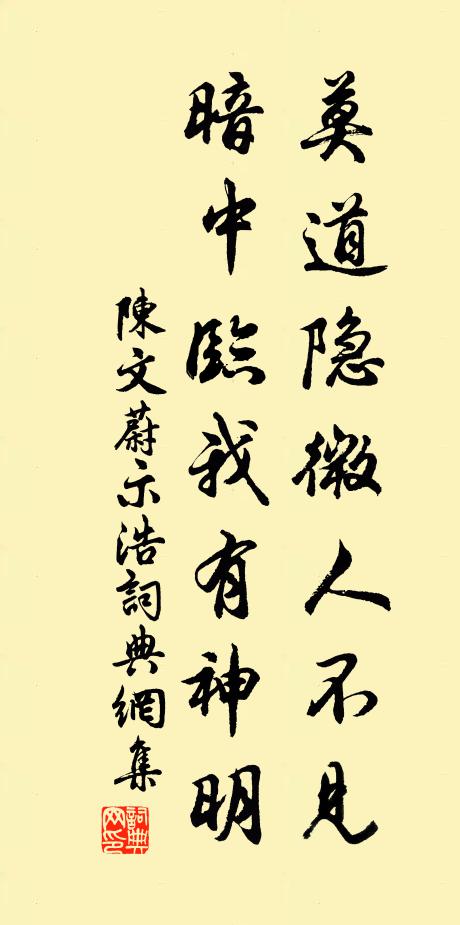 莫道隐微人不見
暗中臨我有神明
陳文蔚示浩詞典網集
詞典
网印